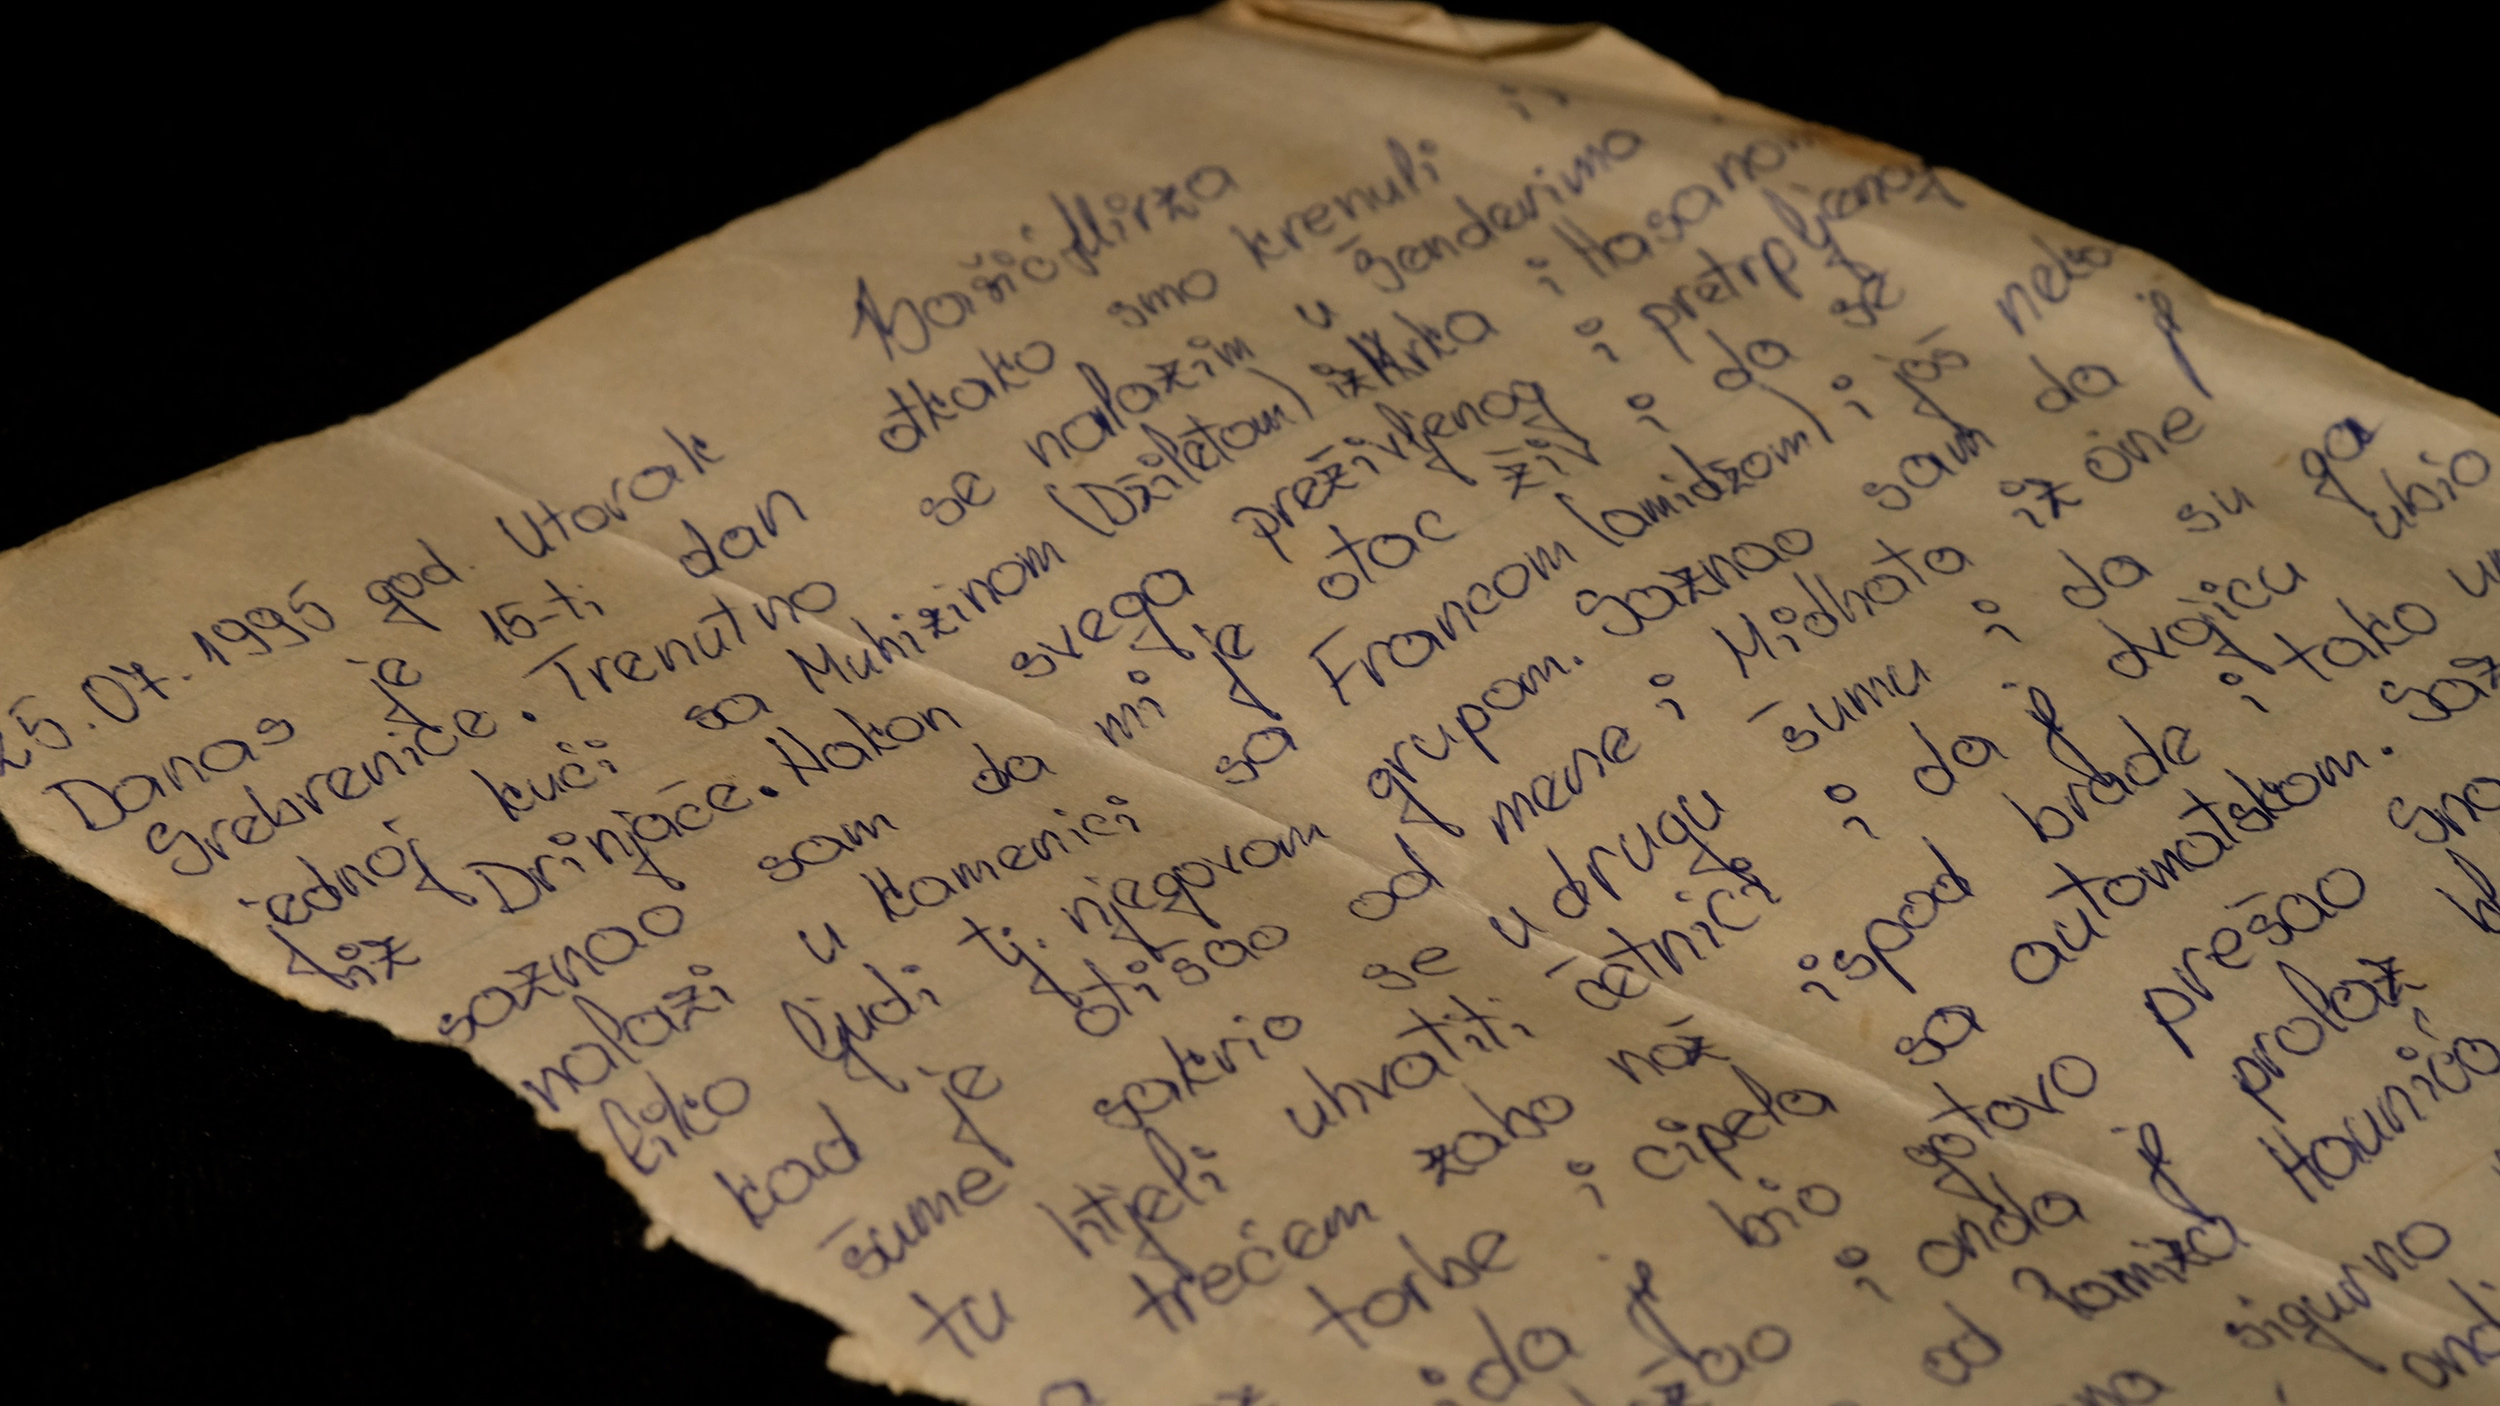 Bašić Mirza
25.07.1995 god. Utorak
Danas je 15-ti dan otkako smo krenuli iz
Srebrenice. Trenutno se nalazim u Šenderima
jednoj kući sa Muhizinom (Džiletom) iz Krka i Hasanom
iz Drinjače. Nakon svega preživljenog i pretrpljenog
saznao sam da mi je otac živ i da se
nalazi u Kamenici sa Francom (amidžom) i još neko
liko ljudi tj. njegovom grupom. Saznao sam da je
kad je otišao od mene i Midhata iz one
šume sakrio se u drugu šumu i da su ga
tu htjeli uhvatiti četnici i da je dvojicu ubio
trećem zabo nož ispod brade i tako
torbe i cipela sa automatskom.
da je bio gotovo prešao
i onda je prolaz
od Ramiza
sigurno